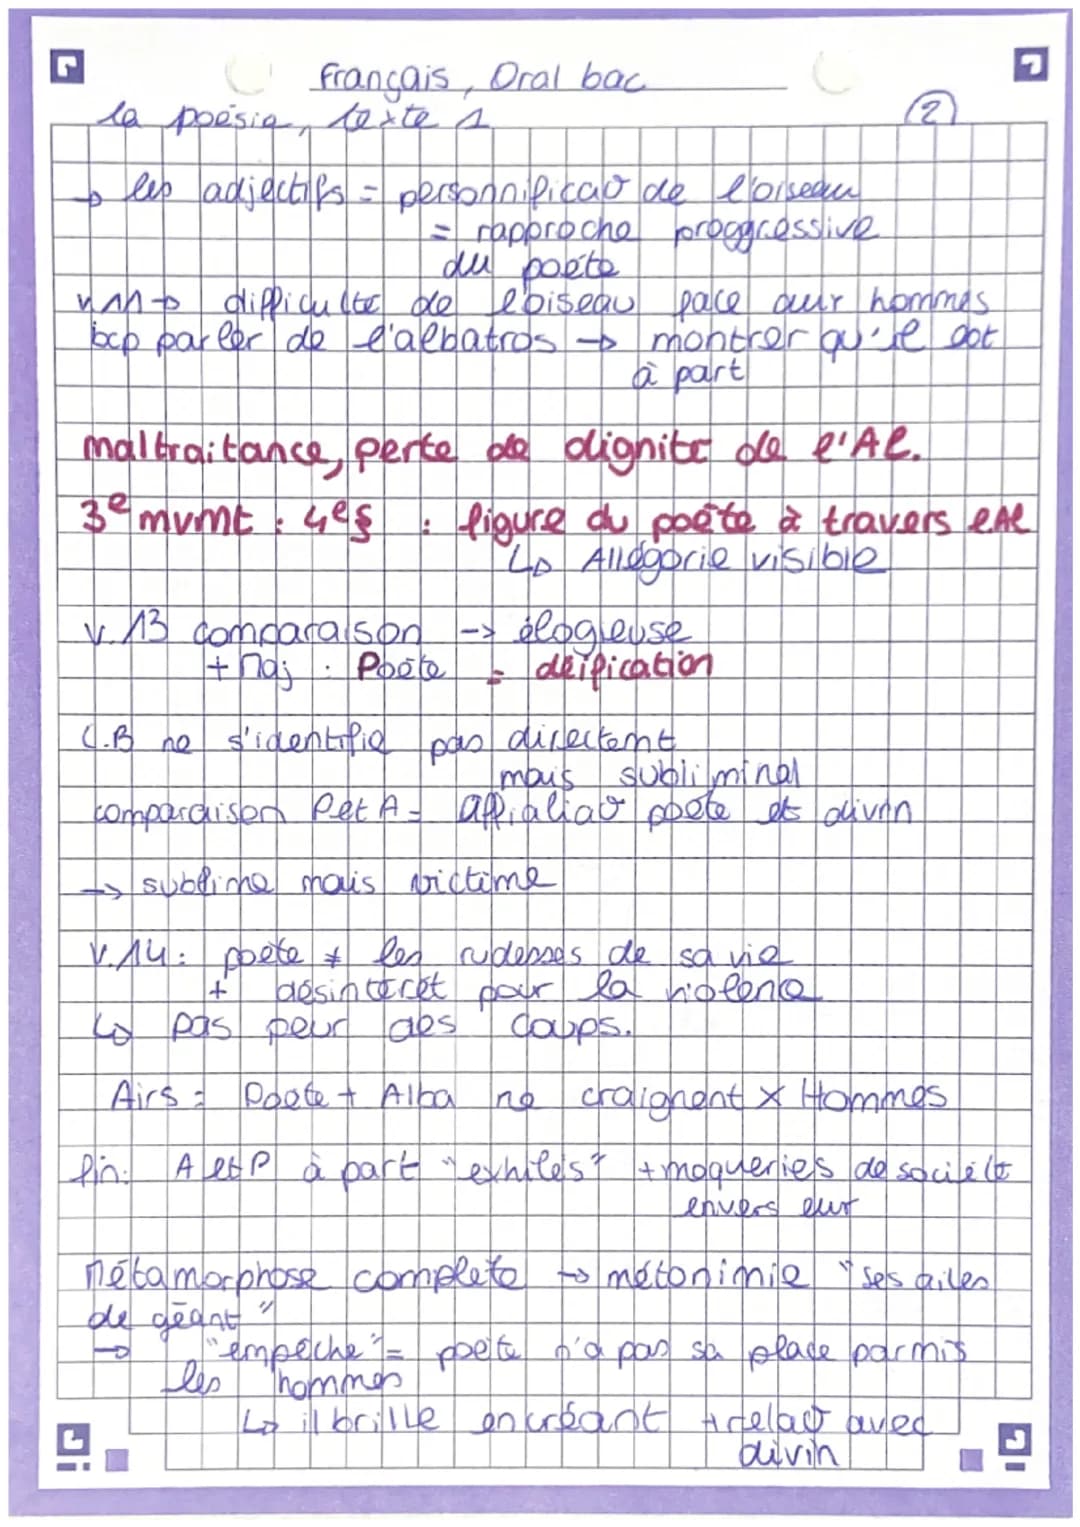 Français, Oral bac
la poésie, texte 1
2
→ les adjectifs = personnificato de l'oiseau
= rapproche proggressive
du poète
v.11→ difficulté de l'oiseau face aux hommes
bcp parler de l'albatros → montrer qu'il est
à part
maltraitance, perte de dignité de l'Al.
3e mvmt : 4e§ : figure du poète à travers l'Al
↳ Allégorie visible
v.13 comparaison -> élogieuse
+ Maj : Poète = déification
C.B ne s'identifie pas directemt
mais subliminal
comparaison P et A = affialiato poète et divin
-> sublime mais victime
V.14: poète ≠ les rudesses de sa vie
+ désintérêt pour la violence
↳ pas peur des coups.
Airs = Poète + Alba ne craignent x Hommes
fin: A et P à part "exhilés" + moqueries de société
envers eux
Métamorphose complète → métonimie "ses ailes
de géant"
→ "empêche" = poète n'a pas sa place parmis
les hommes
↳ il brille en créant + relato avec
divin